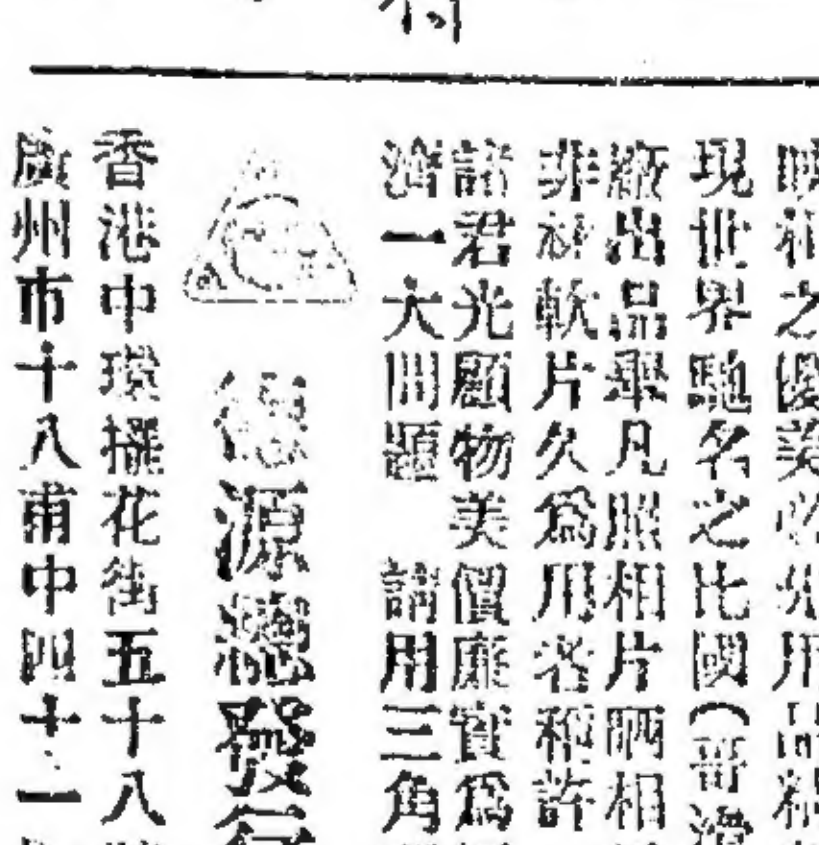 映相之優美必須用品精
現世界馳名之比國（哥濟
廠出品舉凡照相片晒相
非林軟片久為用者稱許
諸君光顧物美價廉實為
濟一大問題 請用三角
源總發行
香港中環擺花街五十八號
廣州市十八甫中四十一